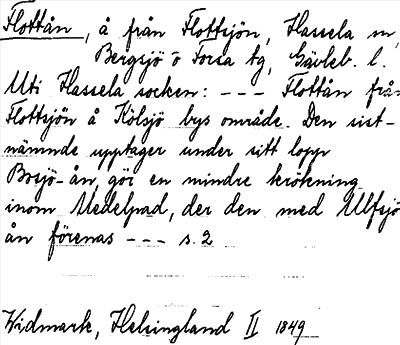 Flottån, å från Flottsjön, Hassela sn,
Bergsjö o Forsa tg, Gävleb. l.
Uti Hassela socken: --- Flottån från
Flottsjön å Kölsjö bys område. Den sist-
nämnde upptager under sitt lopp
Bosjö-ån, gör en mindre krökning
inom Medelpad, der den med Ulfsjö
ån förenas --- s. 2
Widmark, Helsingland II 1849